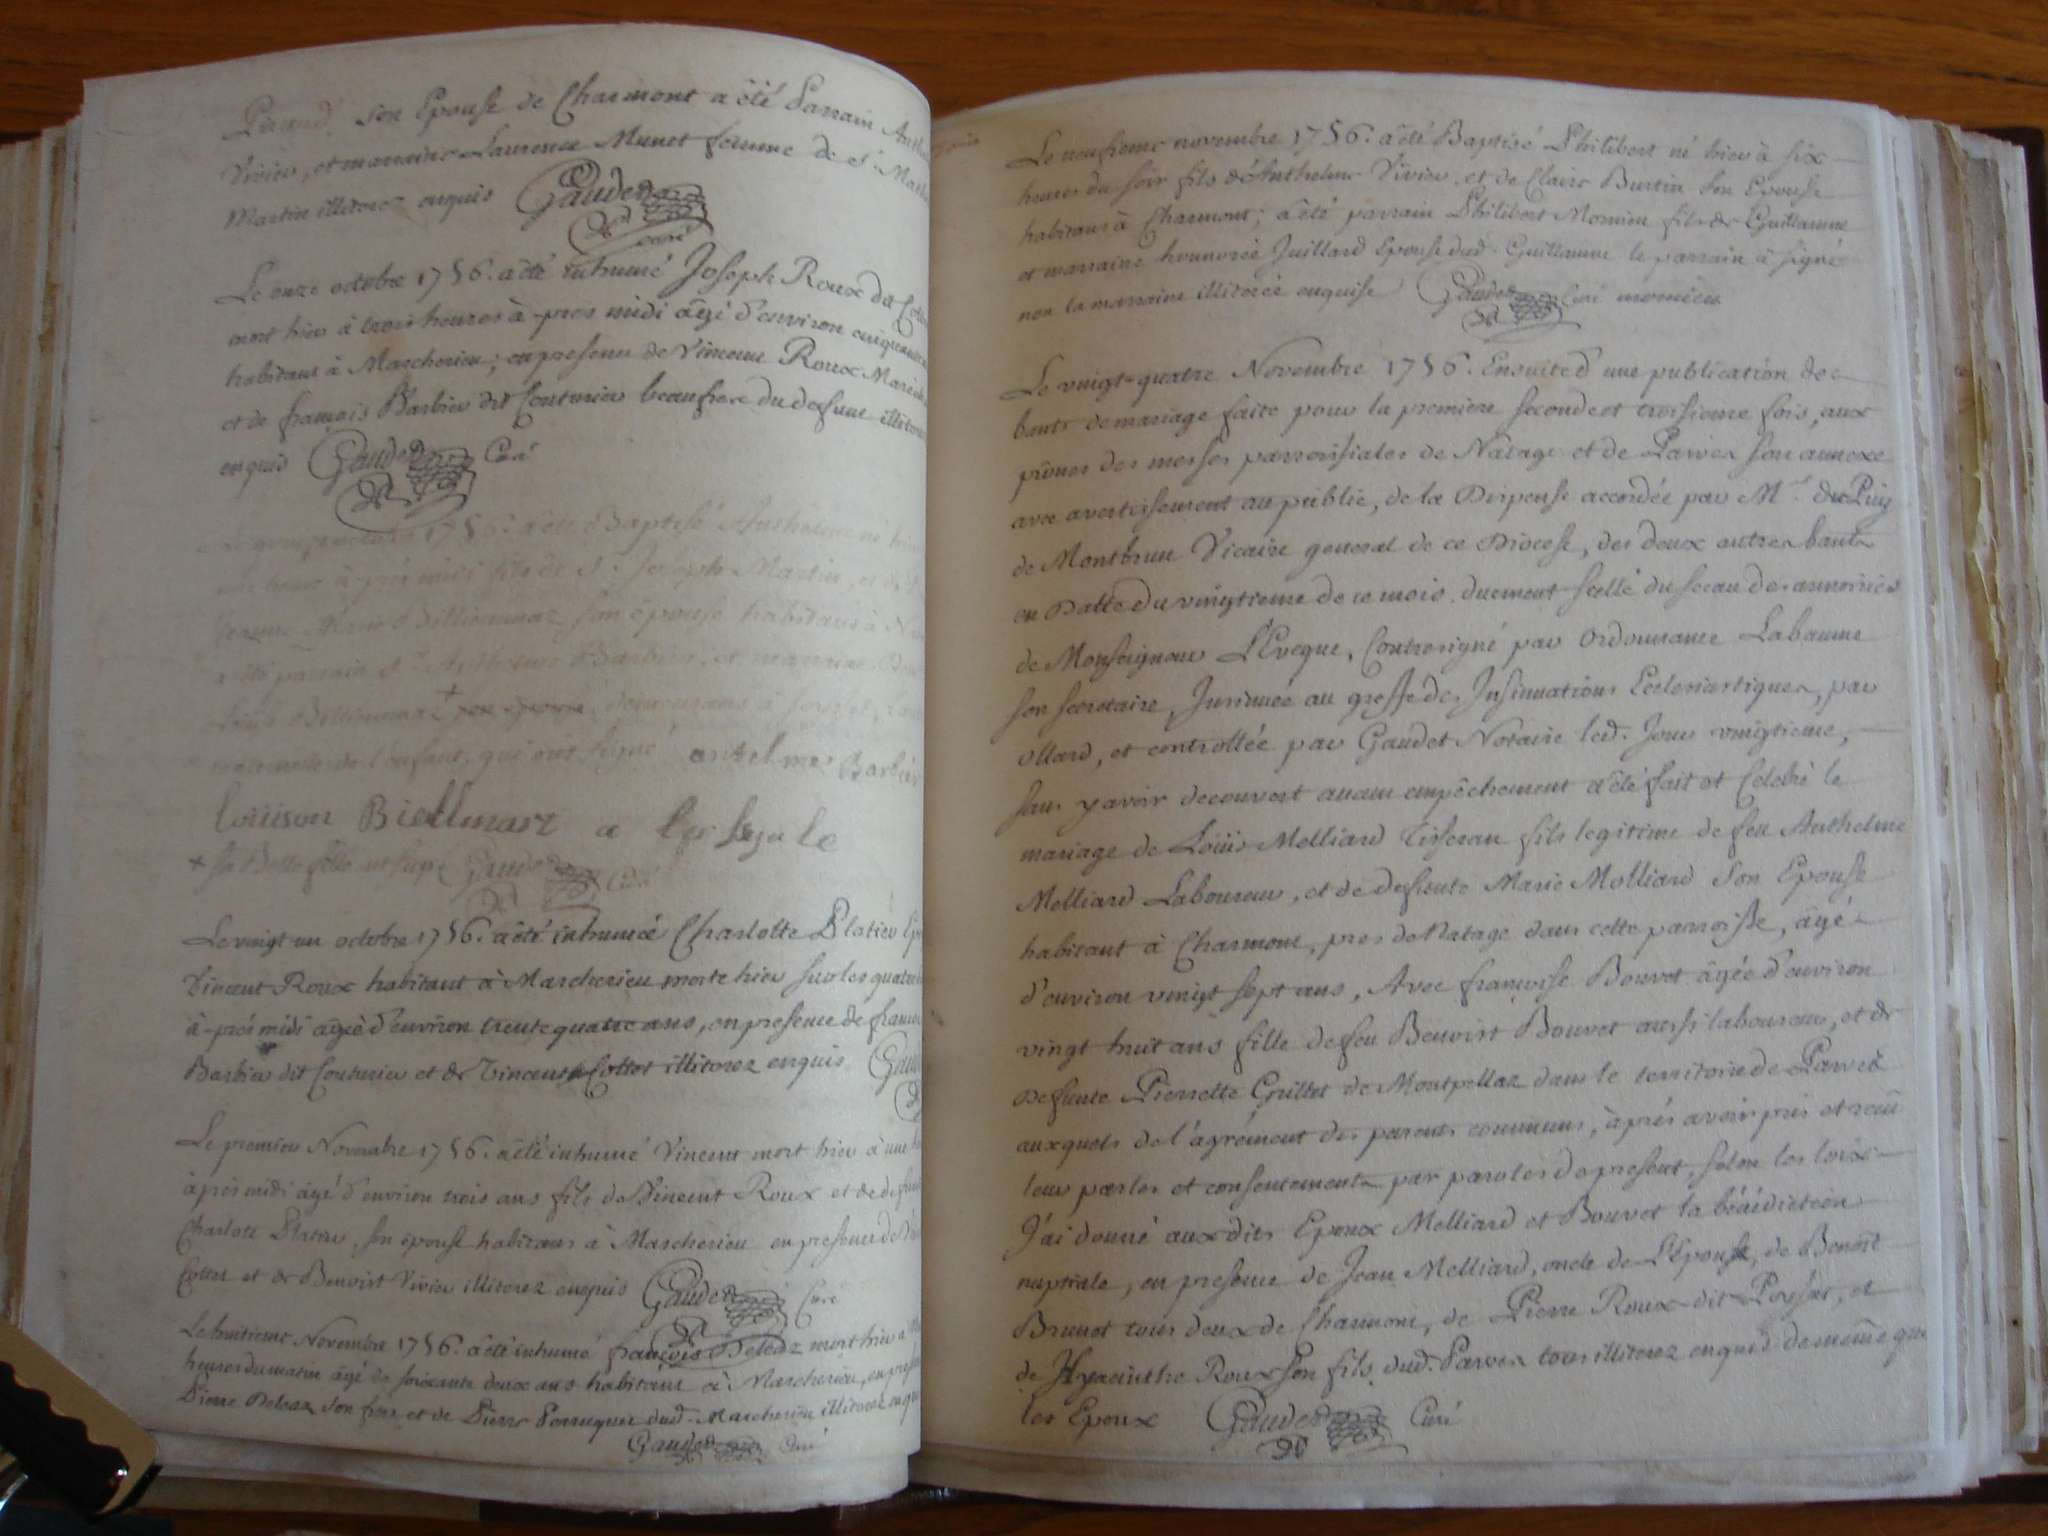 son Epouse de Charmont a été Parrain
Vivier, et marraine Laurence Munet femme de St.
Martin illiterez enquis Gaudet
curé
Le onze octobre 1756. a été inhumé Joseph Roux dit
mort hier à trois heures à-pres midi âgé d'environ
habitant à Marcherieu; en presence de Vincent Roux
et de françois Barbier dit Couturier beaufrere du defunt
enquis Gaudet Curé
octobre 1756. a été Baptisé Anthelme né hier
heure à-pres midi fils de Sr. Joseph Martin, et de
Marie Billiemaz son épouse habitans à
a été parrain Sr. Anthelme Barbier, et marraine
Billiemaz + demeurans à
maternelle de l'enfant, qui ont signé antelme Barbier
louison Biellmarz a
+ sa Belle fille Gaudet Curé
Le vingt un octobre 1756. a été inhumée Charlotte Platier
Vincent Roux habitant à Marcherieu morte hier sur les quatre
à-prés midi âgée d'environ trente quatre ans, en presence de
Barbier dit Couturier et de Vincent Cottet illiterez enquis
Le premier Novembre 1756. a été inhumé Vincent mort hier à une
à pres midi âgé d'environ trois ans fils de Vincent Roux et de
Charlotte Platier, son épouse habitans à Marcherieu en presence de
Cottet et de Benoist Vivier illiterez enquis Gaudet Curé
Le huitieme Novembre 1756. a été inhumé françois Deleaz mort hier a
heures du matin âgé de soixante deux ans habitant à Marcherieu, en
Pierre Deleaz son frere et de Pierre Perruquet dud. Marcherieu illiterez
Gaudet Curé
Le neufieme novembre 1756. a été Baptisé Philibert né hier à six
heures du soir fils d'Anthelme Vivier, et de Claire Burtin son Epouse
habitans à Charmont; a été parrain Philibert Momieu fils de Guillaume
et marraine honnorée Juillard Epouse dud. Guillaume le parrain à signé
non la marraine illiterée enquise Gaudet Curé momieu
Le vingt-quatre Novembre 1756. Ensuite d'une publication de
bants de mariage faite pour la premiere seconde et troisieme fois, aux
prônes des messes parroissiales de Natage et de Parves son annexe
avec avertissement au public, de la Dispense accordée par Mr. du Puy
de Montbrun Vicaire general de ce Diocese, des deux autres bants
en Datte du vingtieme de ce mois. duement scellé du sceau des armoiries
de Monseigneur L'Eveque, Contresigné par Ordonnance Labaume
son secretaire, Insinuée au greffe des Insinuations Ecclesiastiques, par
ollard, et controllée par Gaudet Notaire led. Jour vingtieme,
sans y avoir decouvert aucun empêchement a été fait et Celebré le
mariage de Loüis Melliard Tisseran fils legitime de feu Anthelme
Melliard Laboureur, et de defunte Marie Molliard son Epouse
habitant à Charmont, pres de Natage dans cette parroisse, âgé
d'environ vingt sept ans, Avec françoise Bouvet âgée d'environ
vingt huit ans fille de feu Benoist Bouvet aussi laboureur, et de
defunte Pierrette Grillet de Montpellaz dans le territoire de Parves
auxquels de l'agrément des parents communs, à prés avoir pris et receu
leur paroles et consentements par paroles de present, selon les loix
J'ai donné aux dits Epoux Melliard et Bouvet la bénédiction
nuptiale, en presence de Jean Melliard, oncle de L'Epoux, de Benoit
Brunet tous deux de Charmont, de Pierre Roux dit Peysset, et
de Hyacinthe Roux son fils dud. Parves tous illiterez enquis de même que
les Epoux Gaudet Curé